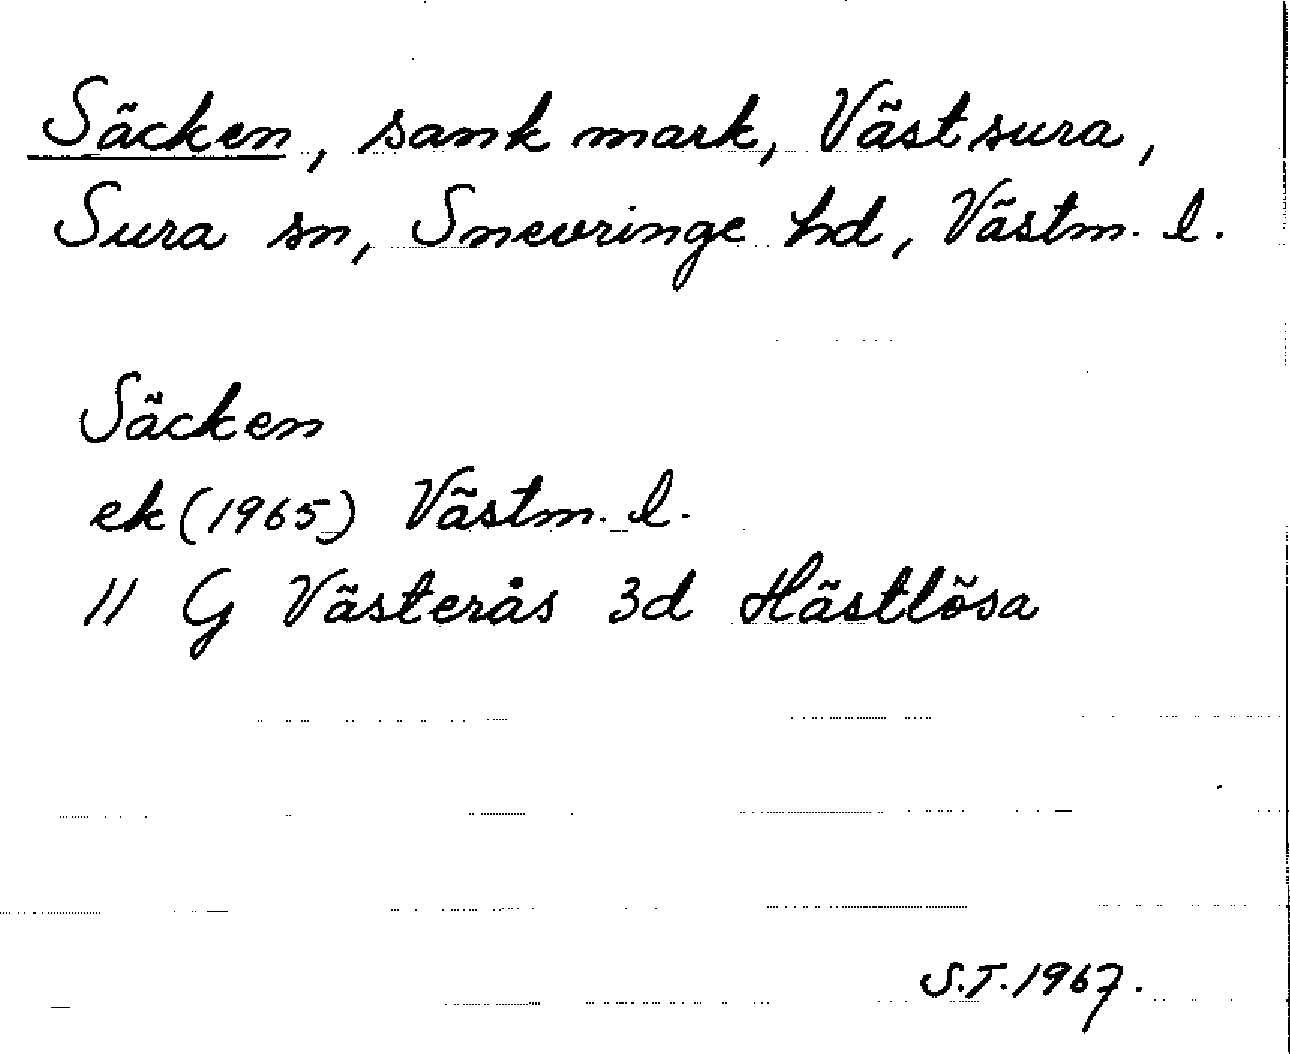 Säcken, sank mark, Västsura,
Sura sn, Snevringe hd, Västm. l.
Säcken
ek (1965) Västm. l.
11 G Västerås 3d Hästlösa
S.T. 1967.